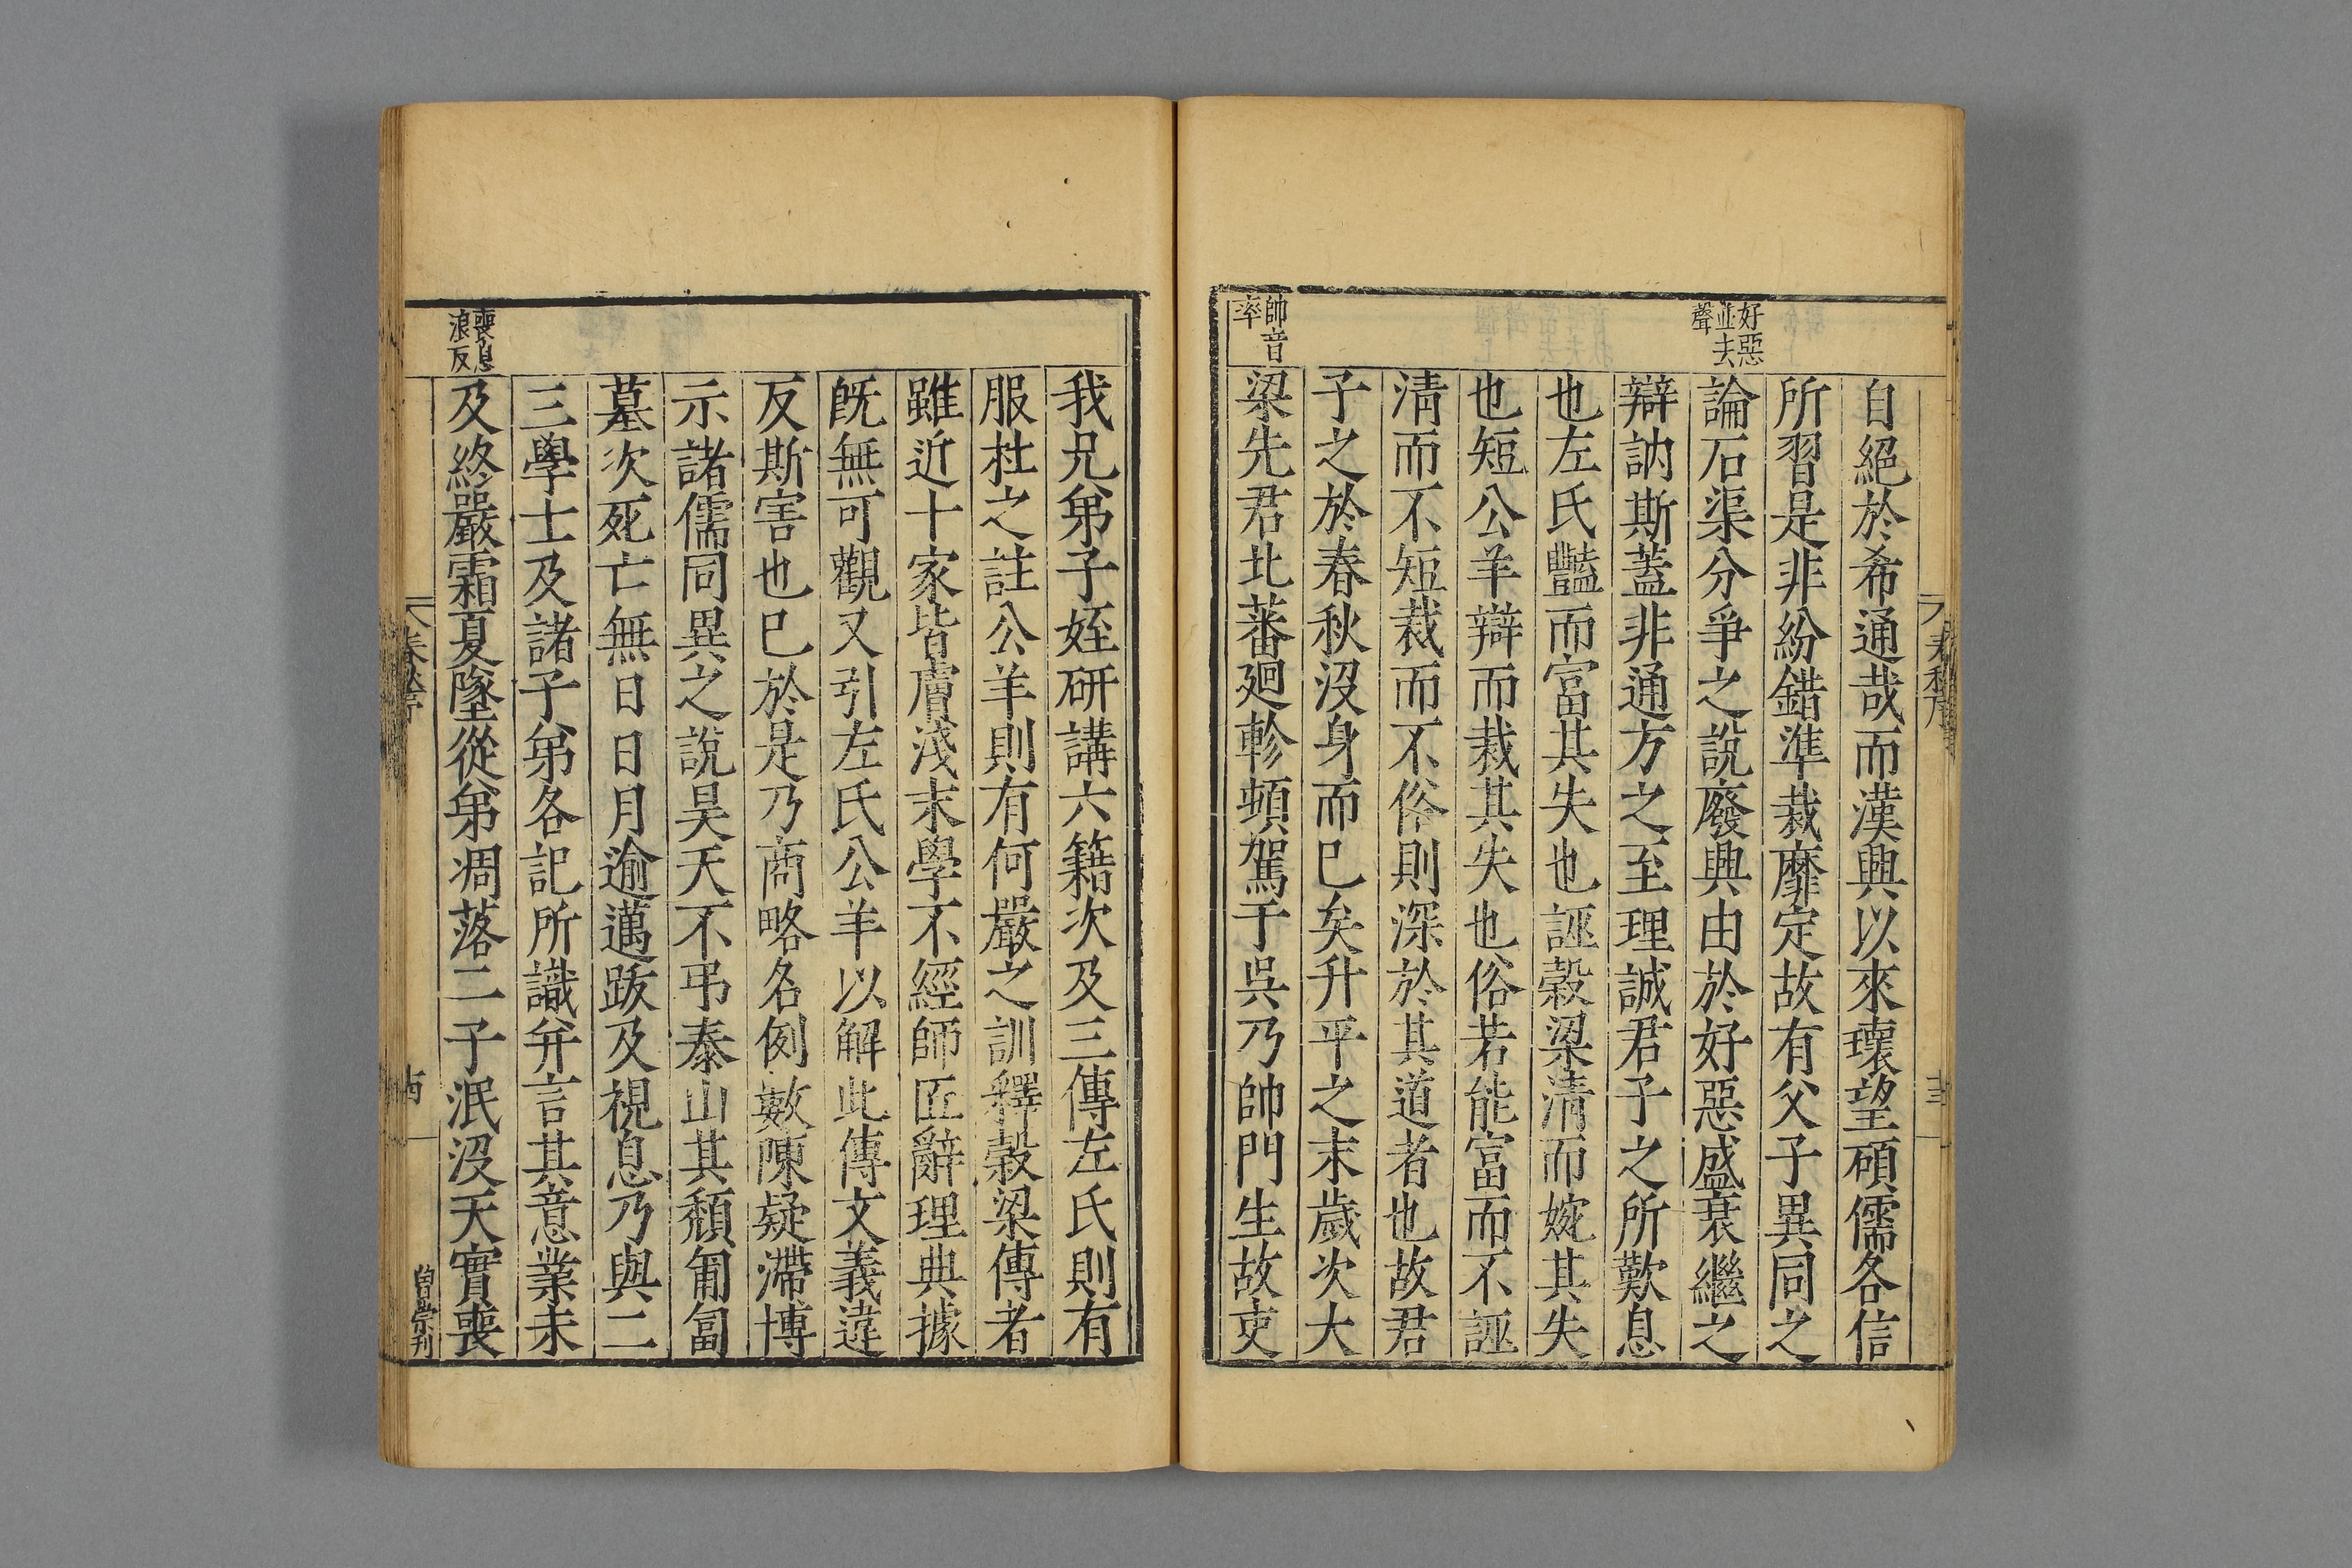 自絕於希通哉而漢興以來瓌望碩儒各信
所習是非紛錯準裁靡定故有父子異同之
好惡
並去
聲
論石渠分爭之說廢興由於好惡盛衰繼之
辯訥斯蓋非通方之至理誠君子之所歎息
也左氏豔而富其失也誣穀梁清而婉其失
也短公羊辯而裁其失也俗若能富而不誣
清而不短裁而不俗則深於其道者也故君
子之於春秋沒身而已矣升平之末歲次大
帥音
率
梁先君北蕃廻軫頓駕于吳乃帥門生故吏
我兄弟子姪研講六籍次及三傳左氏則有
服杜之註公羊則有何嚴之訓釋穀梁傳者
雖近十家皆膚淺末學不經師匠辭理典據
旣無可觀又引左氏公羊以解此傳文義違
反斯害也已於是乃商略名例敷陳疑滯博
示諸儒同異之說昊天不弔泰山其頹匍匐
墓次死亡無日日月逾邁跂及視息乃與二
三學士及諸子弟各記所識并言其意業未
喪息
浪反
及終嚴霜夏墜從弟凋落二子泯沒天實喪
曾崇刊